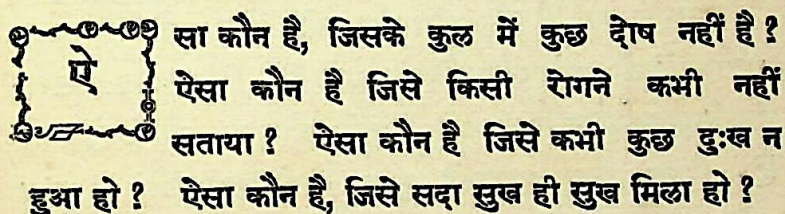 ऐसा कौन है, जिसके कुल में कुछ दोष नहीं है ?
ऐसा कौन है जिसे किसी रोगने कभी नहीं
सताया ? ऐसा कौन है जिसे कभी कुछ दुःख न
हुआ हो ? ऐसा कौन है, जिसे सदा सुख ही सुख मिला हो ?